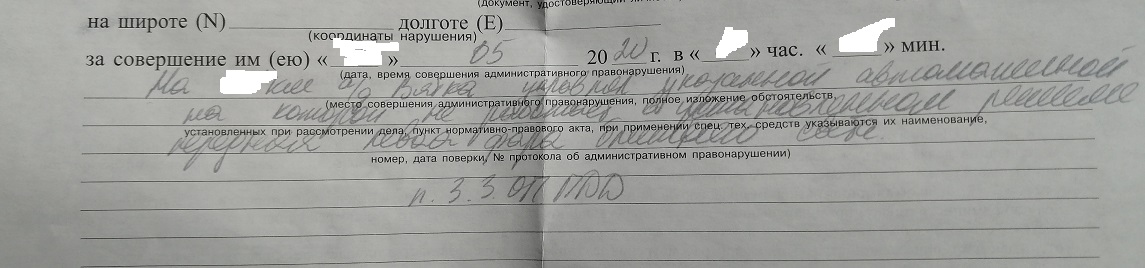 (документ, удостоверяющий
на широте (N) долготе (E)
(координаты нарушения)
за совершение им (ею) « » 05 20 20 г. в « » час. « » мин.
(дата, время совершения административного правонарушения)
На а/д Вятка управлял указанной автомашиной
(место совершения административного правонарушения, полное изложение обстоятельств,
на которой не работает в установленном режиме
установленных при рассмотрении дела, пункт нормативно-правового акта, при применении спец. тех. средств указываются их наименование,
передняя левая фара ближнего света.
номер, дата поверки, № протокола об административном правонарушении)
п. 3.3. ОП ПДД